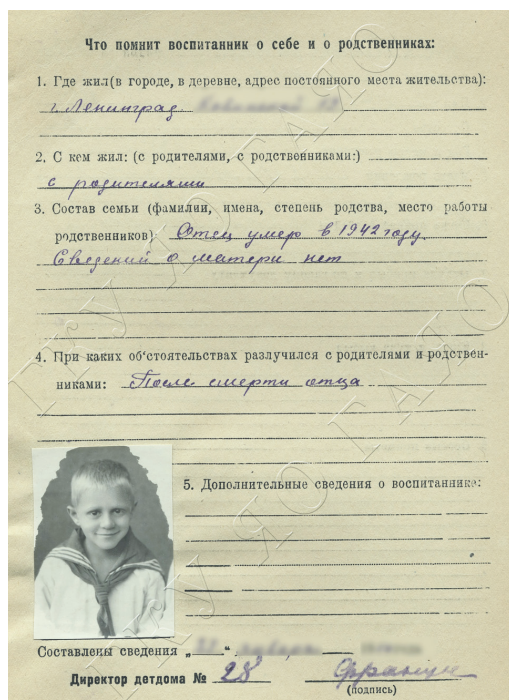 Что помнит воспитанник о себе и о родственниках:
1. Где жил (в городе, в деревне, адрес постоянного места жительства):
г. Ленинград
2. С кем жил: (с родителями, с родственниками:)
с родителями
3. Состав семьи (фамилии, имена, степень родства, место работы
родственников) Отец умер в 1942 году.
Сведений о матери нет
4. При каких об'стоятельствах разлучился с родителями и родствен-
никами: После смерти отца
5. Дополнительные сведения о воспитаннике:
Составлены сведения „ “
Директор детдома № 28
(подпись)
ГКУ ЯО ГАЯО
ГКУ ЯО ГАЯО